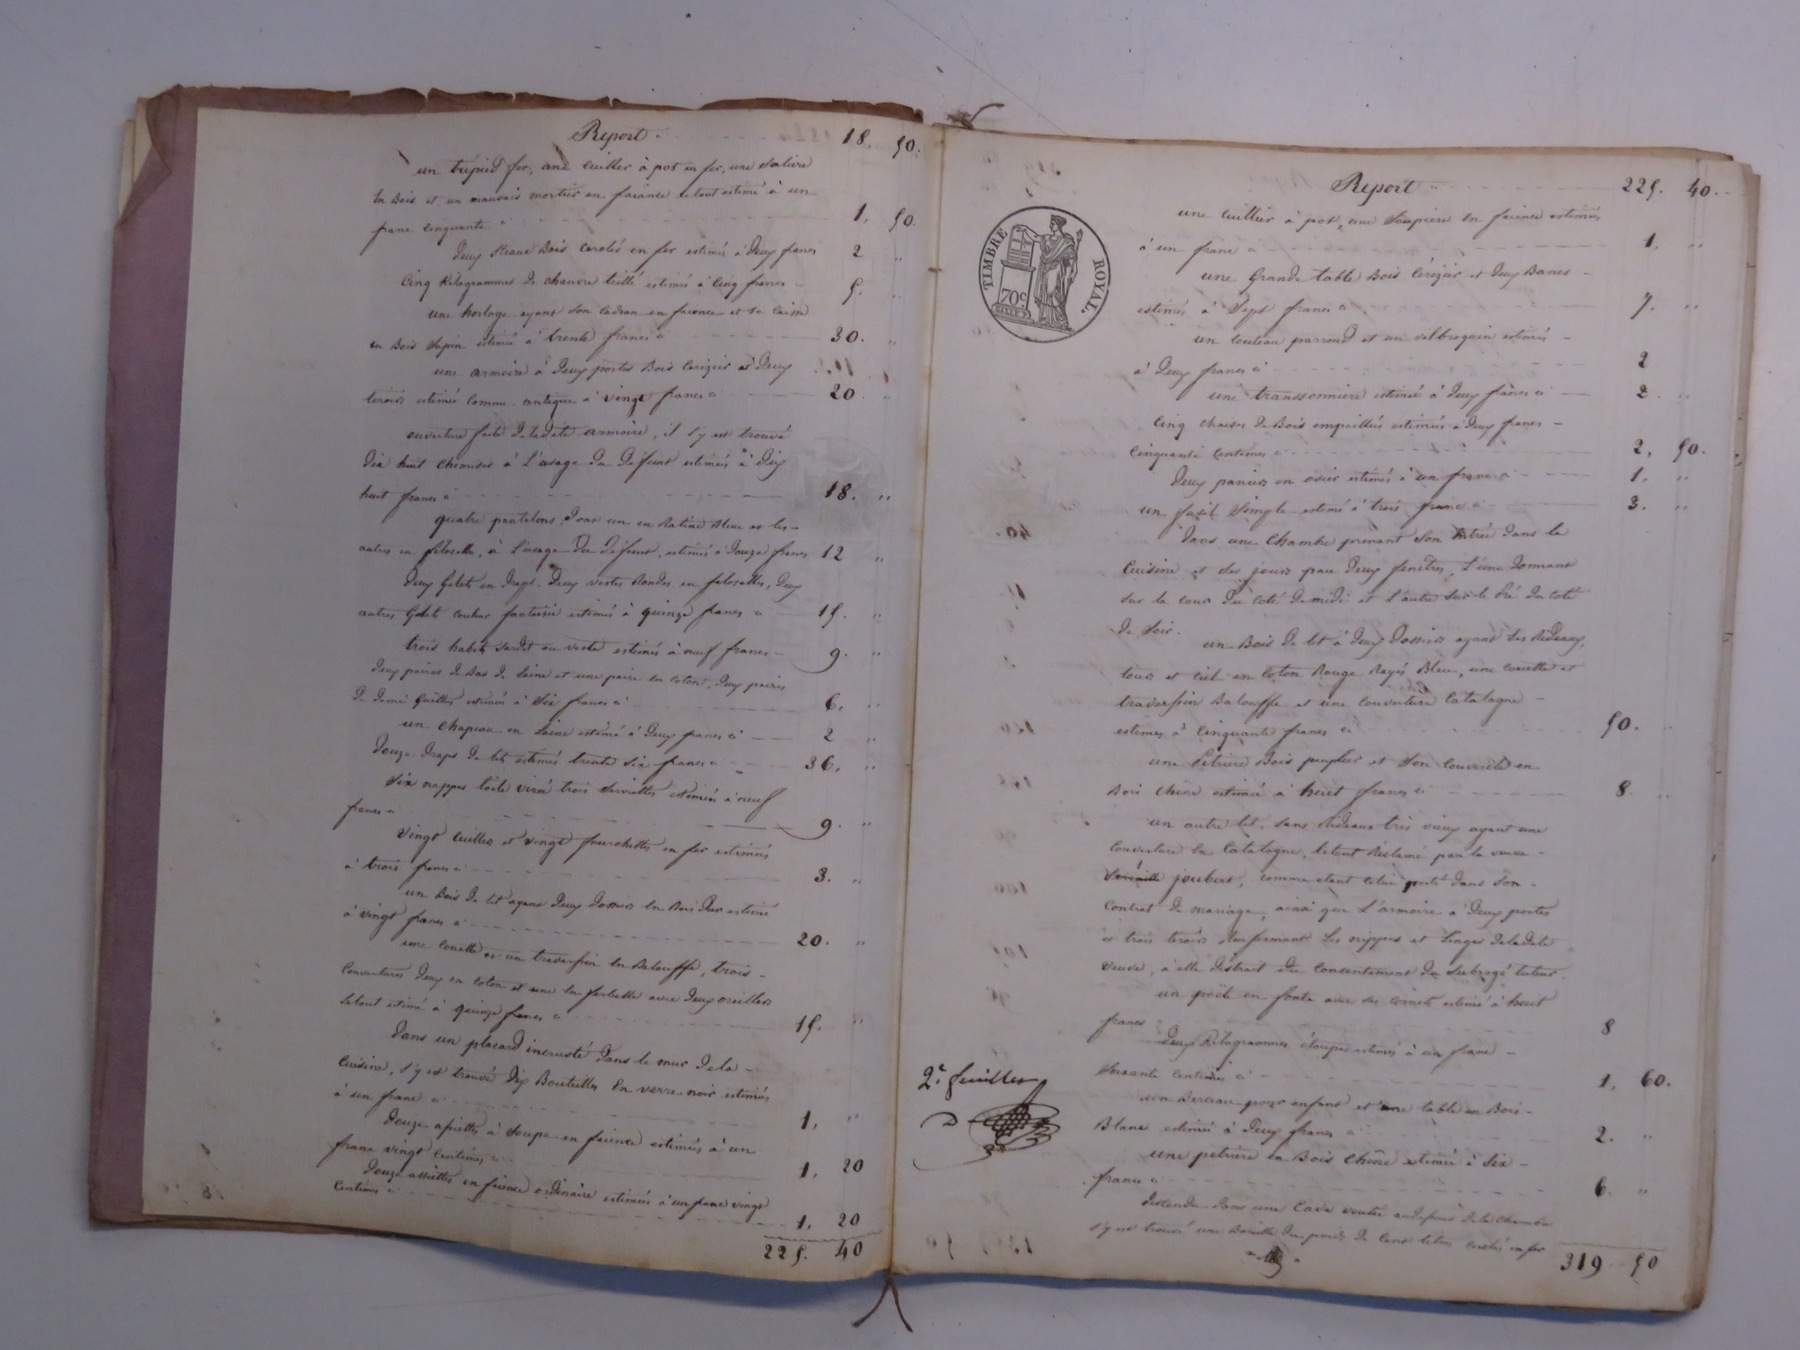 Report 18. 50.
un trépied fer, une cuiller à pot en fer, une salière
en Bois et un mauvais mortier en faïance le tout estimé à un
franc cinquante c. 1. 50.
Deux Sceaux Bois cerclés en fer estimés à Deux francs 2 "
Cinq Kilogrammes de chanvre teillé estimés à Cinq francs 5. "
une horloge ayant Son Cadran en faïence et Sa Caisse
en Bois Sapin estimée à trente francs ci 30. "
une armoire à Deux portes Bois Cerizier et Deux
tiroirs estimée Comme antique à vingt francs ci 20. "
ouverture faite de ladite armoire, il s'y est trouvé
Dix huit Chemises à L'usage Du Défunt estimées à Dix
huit francs ci 18. "
quatre pantalons, Dont un en Ratine Bleue et les
autres en filoselle, à L'usage Du défunt, estimés à Douze francs 12 "
Deux Gilets en Draps, Deux vestes Rondes en filoselles, Deux
autres Gilets couleur fantaisie estimés à quinze francs ci 15. "
trois habits Sardit ou veste estimés à neuf francs 9. "
Deux paires de Bas de Laine et une paire en Coton, Deux paires
De Demi Guêtres estimées à Six francs ci 6. "
un Chapeau en Laine estimé à Deux francs ci 2 "
Douze Draps De lit estimés trente Six francs ci 36. "
Six nappes toile trois Serviettes estimées à neuf
francs ci 9. "
Vingt Cuillers et vingt fourchettes en fer estimées
à trois francs ci 3. "
un Bois De lit ayant Deux Dossiers en Bois Dur estimé
à vingt francs ci 20. "
une Couette et un traversin en Balouffe, trois
Couvertures Deux en Coton et une en avec Deux oreillers
Letout estimé à quinze francs ci 15. "
Dans un placard incrusté Dans le mur De la
Cuisine, s'y est trouvé Dix Bouteilles en verre noir estimées
à un franc ci 1. "
Douze assiettes à Soupe en faïence estimées à un
franc vingt Centimes ci 1. 20
Douze assiettes en faïence ordinaire estimées à un franc vingt
Centimes ci 1. 20
225. 40
Report 225. 40.
TIMBRE ROYAL.
70c.
une Cuillier à pot, une Soupière en faïence estimées
à un franc ci 1. "
une Grande table Bois Cérizier et Deux Bancs
estimés à Sept francs ci 7. "
un Couteau parroud et un vilbroquin estimés
à Deux francs ci 2
une transsonnière estimée à Deux francs ci 2 "
Cinq chaises de Bois empaillées estimées à Deux francs
Cinquante Centimes ci 2. 50.
Deux paniers en osier estimés à un franc ci 1. "
un fusil Simple estimé à trois francs ci 3. "
Dans une Chambre prenant Son Entrée Dans la
Cuisine et des jours par Deux fenêtres, L'une Donnant
Sur la cour Du Coté De midi et L'autre Sur le Pré Du Coté
De Soir.
un Bois De lit à Deux Dossiers ayant Ses Rideaux,
tours et ciel en Coton Rouge Rayés Bleu, une couette et
traversin Balouffe et une Couverture Catalogne
estimés à Cinquante francs ci 50. "
une Petrière Bois peuplier et Son Couvercle en
Bois Chêne estimée à huit francs ci 8. "
un autre lit, Sans Rideaux très vieux ayant une
Couverture en Catalogne, letout Réclamé par la veuve
joubert, comme etant Celui porté Dans Son
Contrat De mariage, ainsi que L'armoire à Deux portes
et trois tiroirs Renfermant Les nippes et Linges De ladite
veuve, à elle Distrait Du Consentement Du Subrogé tuteur.
un poële en fonte avec ses cornets estimé à huit
francs 8
Deux Kilogrammes étoupes estimés à un franc
Soixante Centimes ci 1. 60.
un Berceau pour enfant et une table en Bois
Blanc estimés à Deux francs ci 2. "
une petrière en Bois Chêne estimée à Six
francs ci 6. "
Descendu Dans une Cave voutée audessous De la Chambre
s'y est trouvé une Barrille Du poids De Cent litres Cerclée en fer
319 50
2e. feuilles